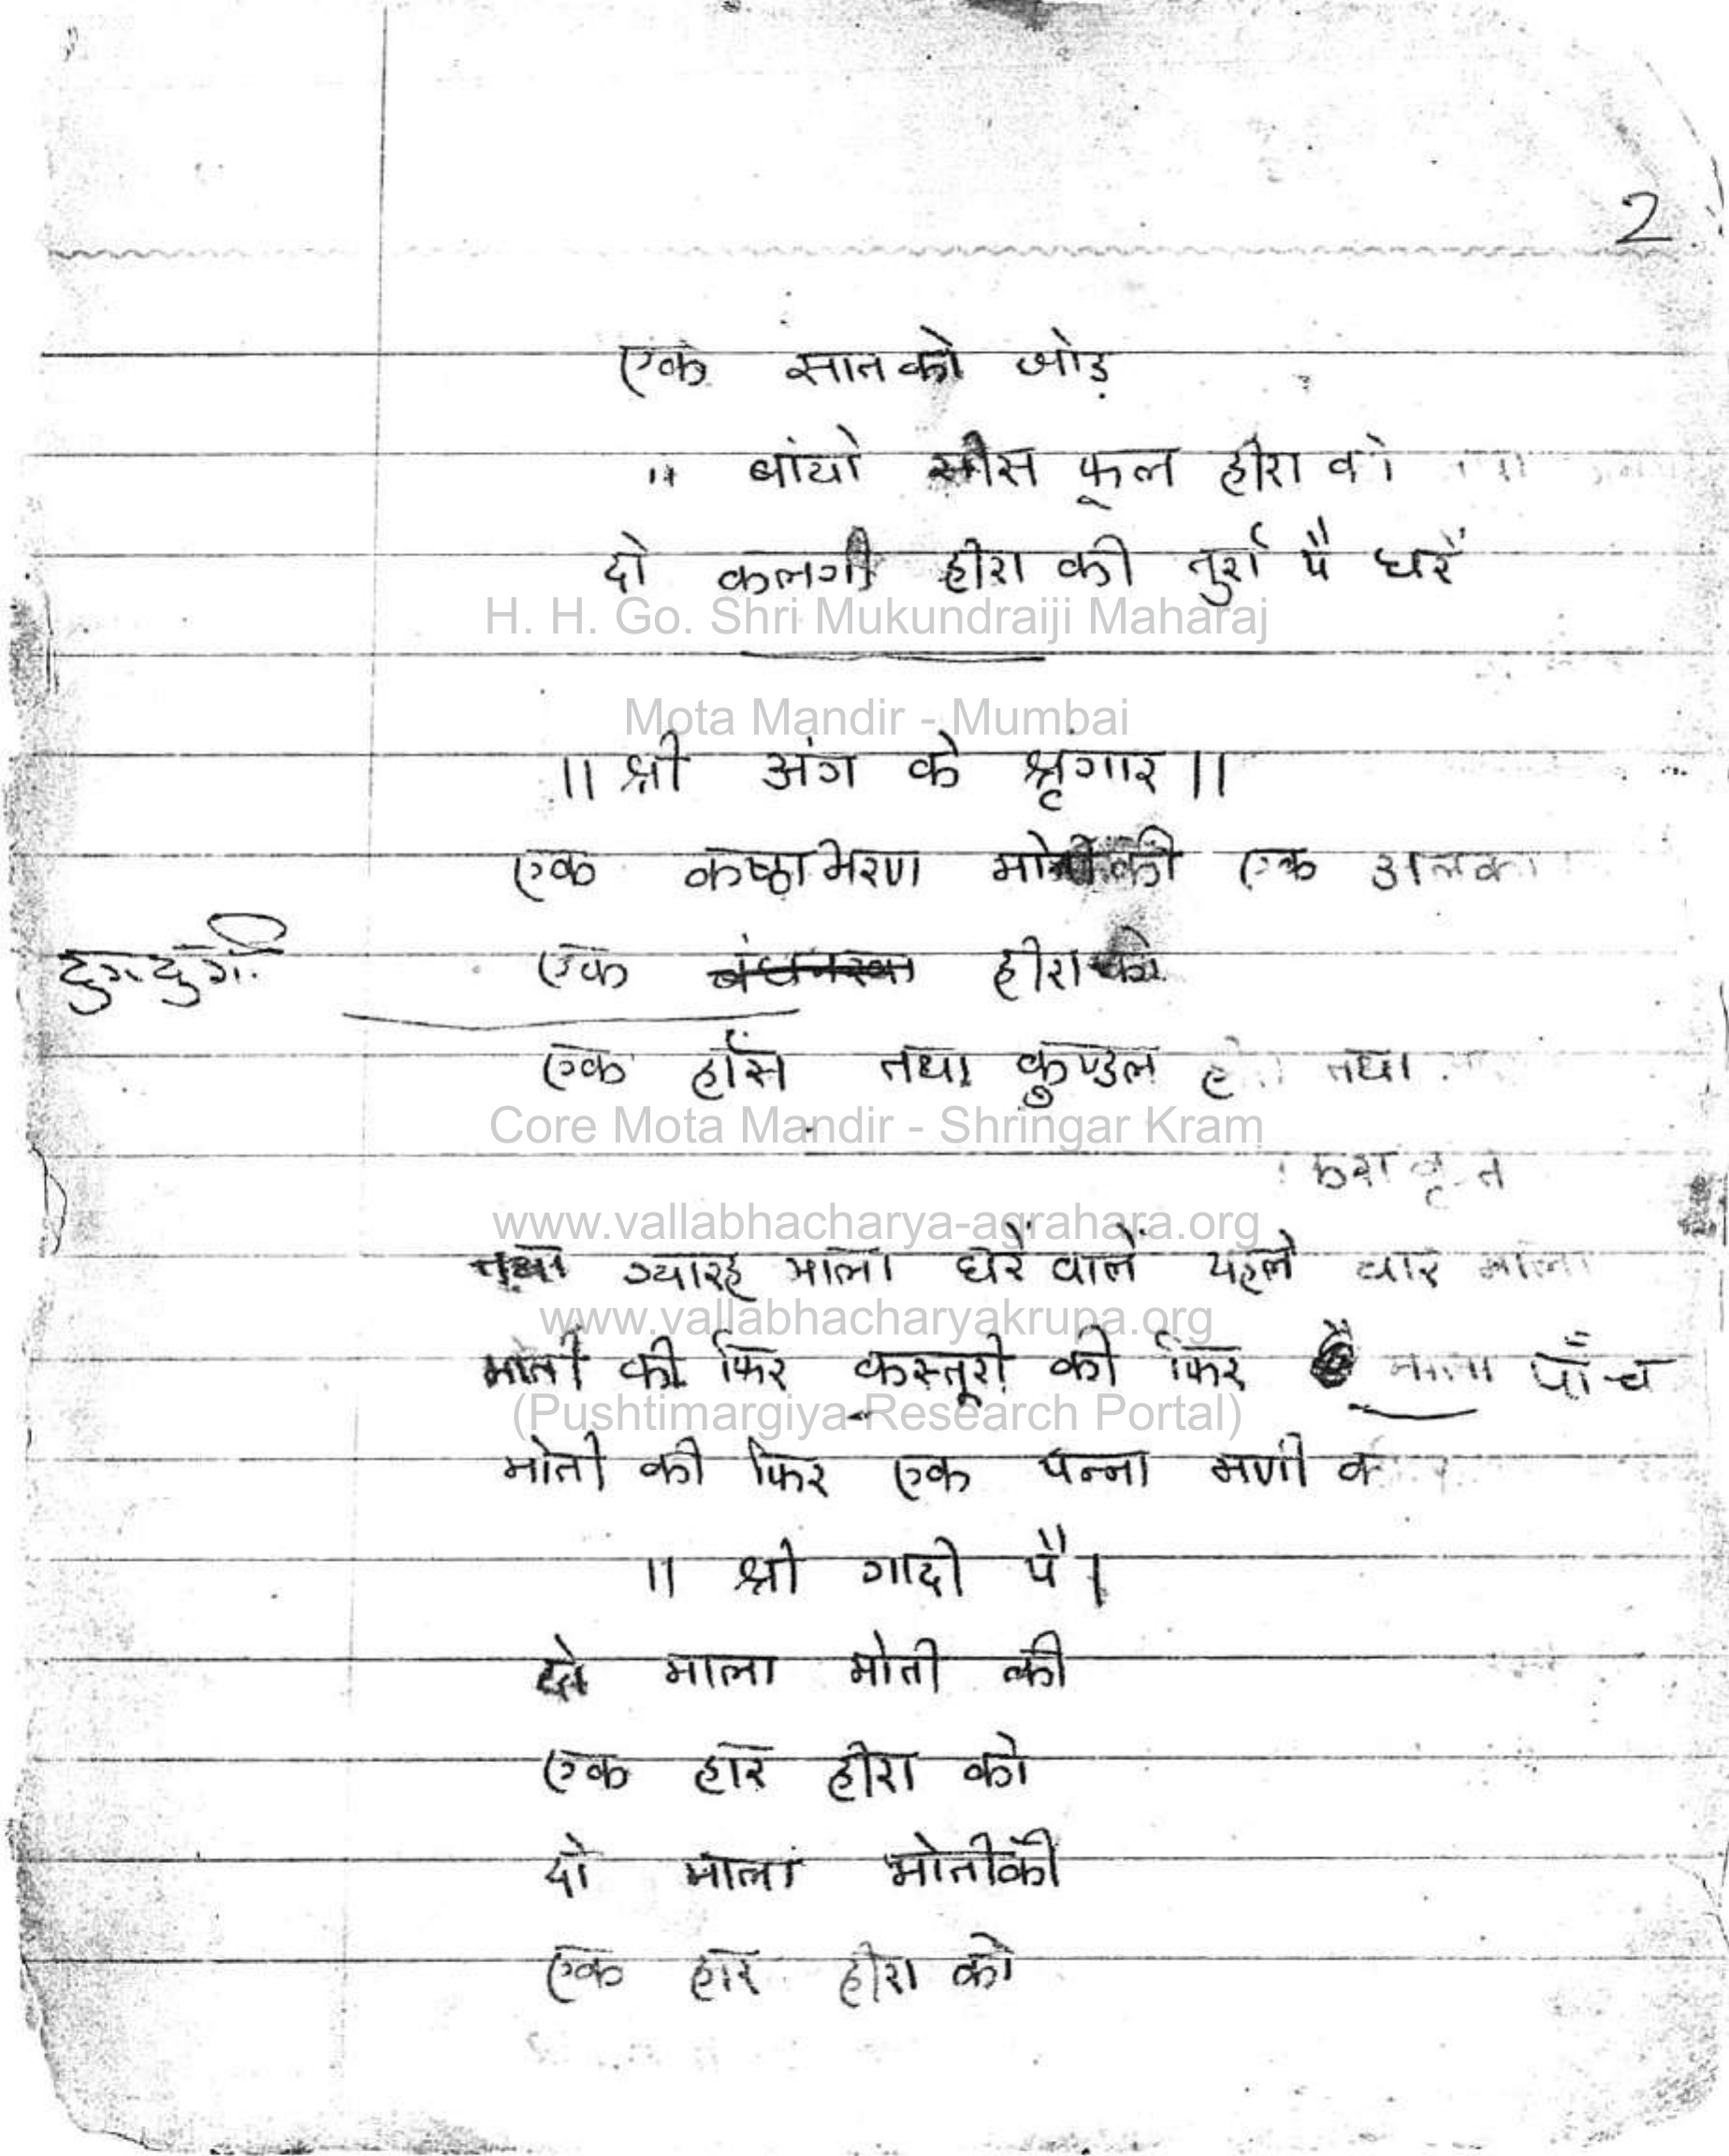 2
एक सातको जोड़
" बांयो सीस फूल हीरा को
दो कलगी हीरा की तुर्रा पै धरें
H. H. Go. Shri Mukundraiji Maharaj
Mota Mandir - Mumbai
॥ श्री अंग के श्रृंगार ॥
एक कण्ठाभरण मोतीकी एक अलका
दुगदुगी एक हीराको
एक हाँस तथा कुण्डल तथा
Core Mota Mandir - Shringar Kram
www.vallabhacharya-agrahara.org
तथा ग्यारह माला धरें वामें पहले चार माला
www.vallabhacharyakrupa.org
मोती की फिर कस्तूरी की फिर माला पाँच
(Pushtimargiya Research Portal)
मोती की फिर एक पन्ना मणी
॥ श्री गादी पै।
दो माला मोती की
एक हार हीरा को
दो माला मोतीकी
एक हार हीरा को